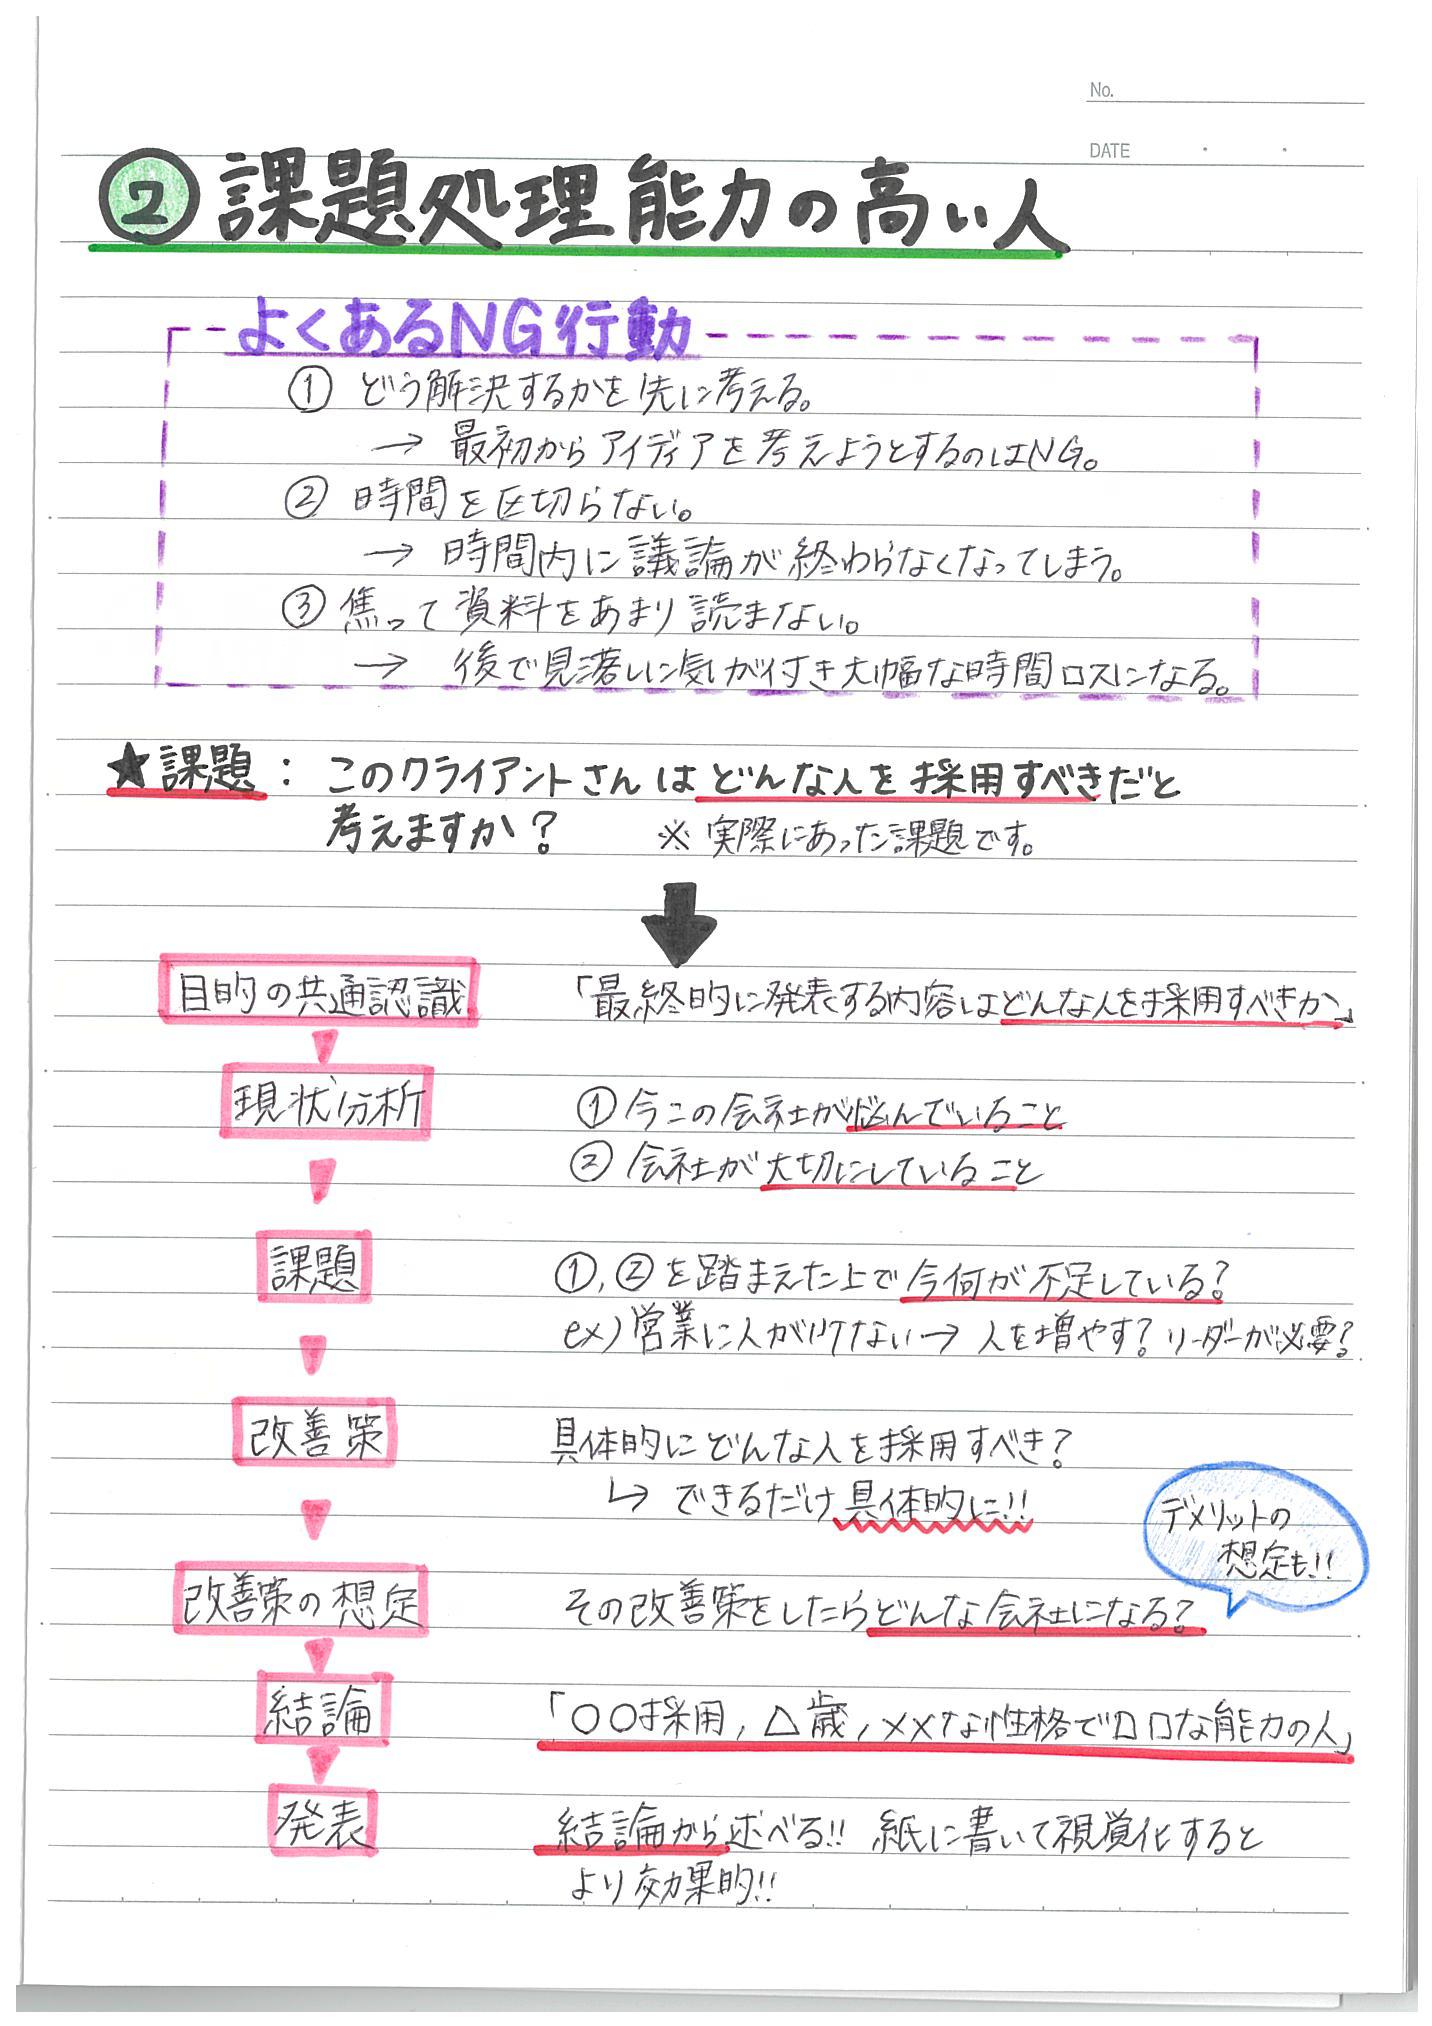 No.
DATE
② 課題処理能力の高い人
よくあるNG行動
① どう解決するかを先に考える。
→ 最初からアイディアを考えようとするのはNG。
② 時間を区切らない。
→ 時間内に議論が終わらなくなってしまう。
③ 焦って資料をあまり読まない。
→ 後で見落しに気が付き大幅な時間ロスになる。
★課題：このクライアントさんはどんな人を採用すべきだと
考えますか？ ※実際にあった課題です。
目的の共通認識 「最終的に発表する内容はどんな人を採用すべきか」
現状分析 ① 今この会社が悩んでいること
② 会社が大切にしていること
課題 ①,②を踏まえた上で今何が不足している?
ex) 営業に人がいない → 人を増やす? リーダーが必要?
改善策 具体的にどんな人を採用すべき?
↳ できるだけ具体的に!!
デメリットの
想定も!!
改善策の想定 その改善策をしたらどんな会社になる?
結論 「○○採用, △歳, ××な性格で□□な能力の人」
発表 結論から述べる!! 紙に書いて視覚化すると
より効果的!!